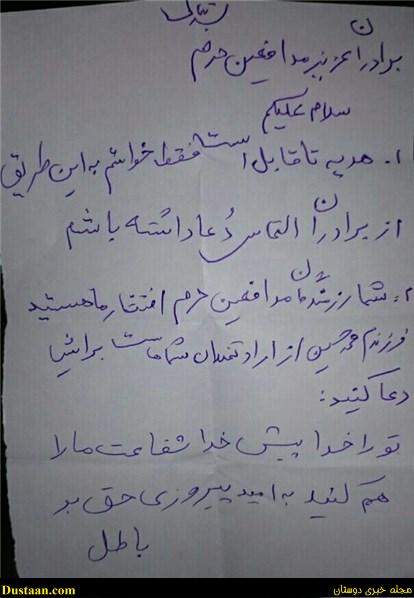 بسمه تعالی
برادران عزیز مدافعین حرم
سلام علیکم
۱. هدیه ناقابل است فقط خواستم به این طریق
از برادران التماس دعا داشته باشم
۲. شما رزمندگان مدافعین حرم افتخار ما هستید
فرزندم محمدحسین از ارادتمندان شماست برایش
دعا کنید:
تو را خدا پیش خدا شفاعت ما را
هم کنید به امید پیروزی حق بر
باطل
Dustaan.com
مجله خبری دوستان